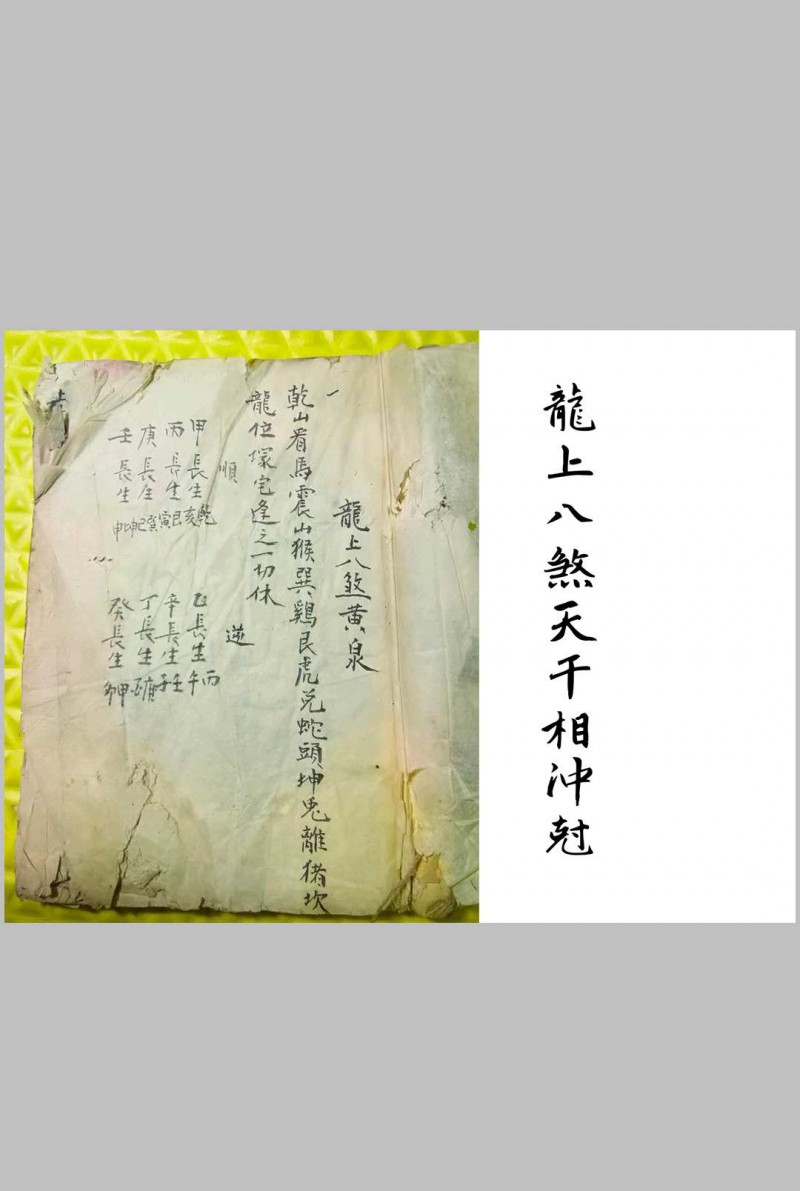 龍上八煞天干相沖尅
龍上八煞黄泉
一
乾山看馬震山猴巽鷄艮虎兑蛇頭坤兎離猪坎
龍位塚宅逢之一切休
順
甲長生乾亥
丙長生艮寅
庚長生巽巳
壬長生坤申
逆
乙長生丙午
辛長生壬子
丁長生庚酉
癸長生甲卯